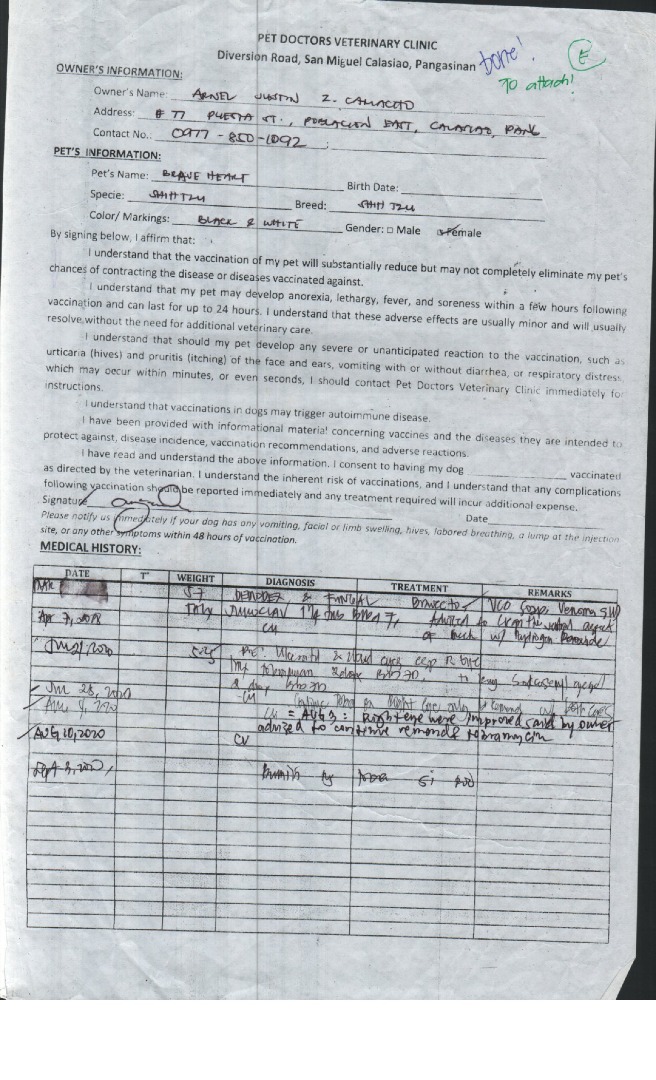 PET DOCTORS VETERINARY CLINIC
Diversion Road, San Miguel Calasiao, Pangasinan
done!
E
To attach!
OWNER'S INFORMATION:
Owner's Name: ARNEL JUSTIN Z. CAMACHO
Address: # 77 ST., POBLACION EAST, CALASIAO, PANG
Contact No.: 0977-850-1092
PET'S INFORMATION:
Pet's Name: BRAVE HEART Birth Date:
Specie: SHIH TZU Breed: SHIH TZU
Color/ Markings: BLACK & WHITE Gender: □ Male ☑ Female
By signing below, I affirm that:
I understand that the vaccination of my pet will substantially reduce but may not completely eliminate my pet's
chances of contracting the disease or diseases vaccinated against.
I understand that my pet may develop anorexia, lethargy, fever, and soreness within a few hours following
vaccination and can last for up to 24 hours. I understand that these adverse effects are usually minor and will usually
resolve without the need for additional veterinary care.
I understand that should my pet develop any severe or unanticipated reaction to the vaccination, such as
urticaria (hives) and pruritis (itching) of the face and ears, vomiting with or without diarrhea, or respiratory distress,
which may occur within minutes, or even seconds, I should contact Pet Doctors Veterinary Clinic immediately for
instructions.
I understand that vaccinations in dogs may trigger autoimmune disease.
I have been provided with informational material concerning vaccines and the diseases they are intended to
protect against, disease incidence, vaccination recommendations, and adverse reactions.
I have read and understand the above information. I consent to having my dog vaccinated
as directed by the veterinarian. I understand the inherent risk of vaccinations, and I understand that any complications
following vaccination should be reported immediately and any treatment required will incur additional expense.
Signature Date
Please notify us immediately if your dog has any vomiting, facial or limb swelling, hives, labored breathing, a lump at the injection
site, or any other symptoms within 48 hours of vaccination.
MEDICAL HISTORY:
DATE T° WEIGHT DIAGNOSIS TREATMENT REMARKS
5.7 DEMODEX & FUNGAL VCO Soap,
Apr 7, 2018 advised to clean the aspect
of w/ hydrogen Peroxide
5.25
Jul 28, 2020 Right eye only
Aug 4, 2020 = AUG 3: Right eye were improved said by owner
advised to continue tobramycin
AUG 10, 2020 CV
Sept 3, 2020,